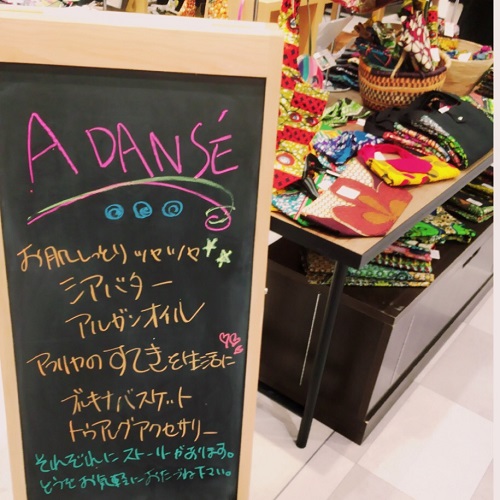 A DANSÉ
お肌しっとりツヤツヤ
シアバター
アルガンオイル
アフリカのすてきを生活に
ブルキナバスケット
トゥアレグアクセサリー
それぞれにストーリーがあります。
どうぞお気軽におたづね下さい。